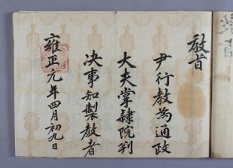 敎旨
尹行敎為通政
大夫掌隷院判
决事知製敎者
雍正元年四月初九日